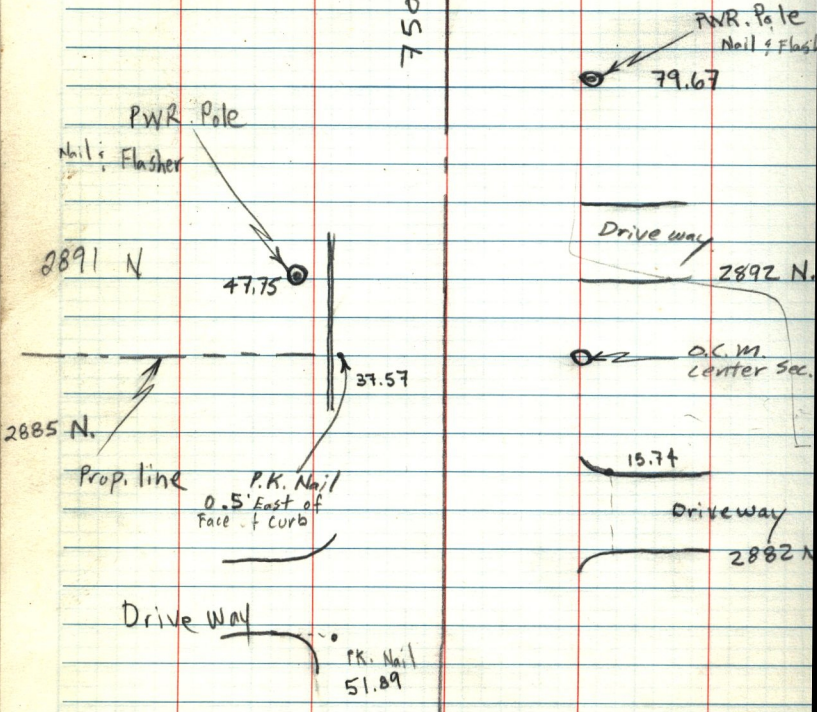 750
PWR. Pole
Nail & Flash
79.67
PWR. Pole
Nail & Flasher
2891 N
47.75
Drive way
2892 N.
37.57
O.C.M.
center Sec.
2885 N.
Prop. line
P.K. Nail
0.5' East of
Face of Curb
15.74
Driveway
2882 N
Drive Way
PK. Nail
51.89